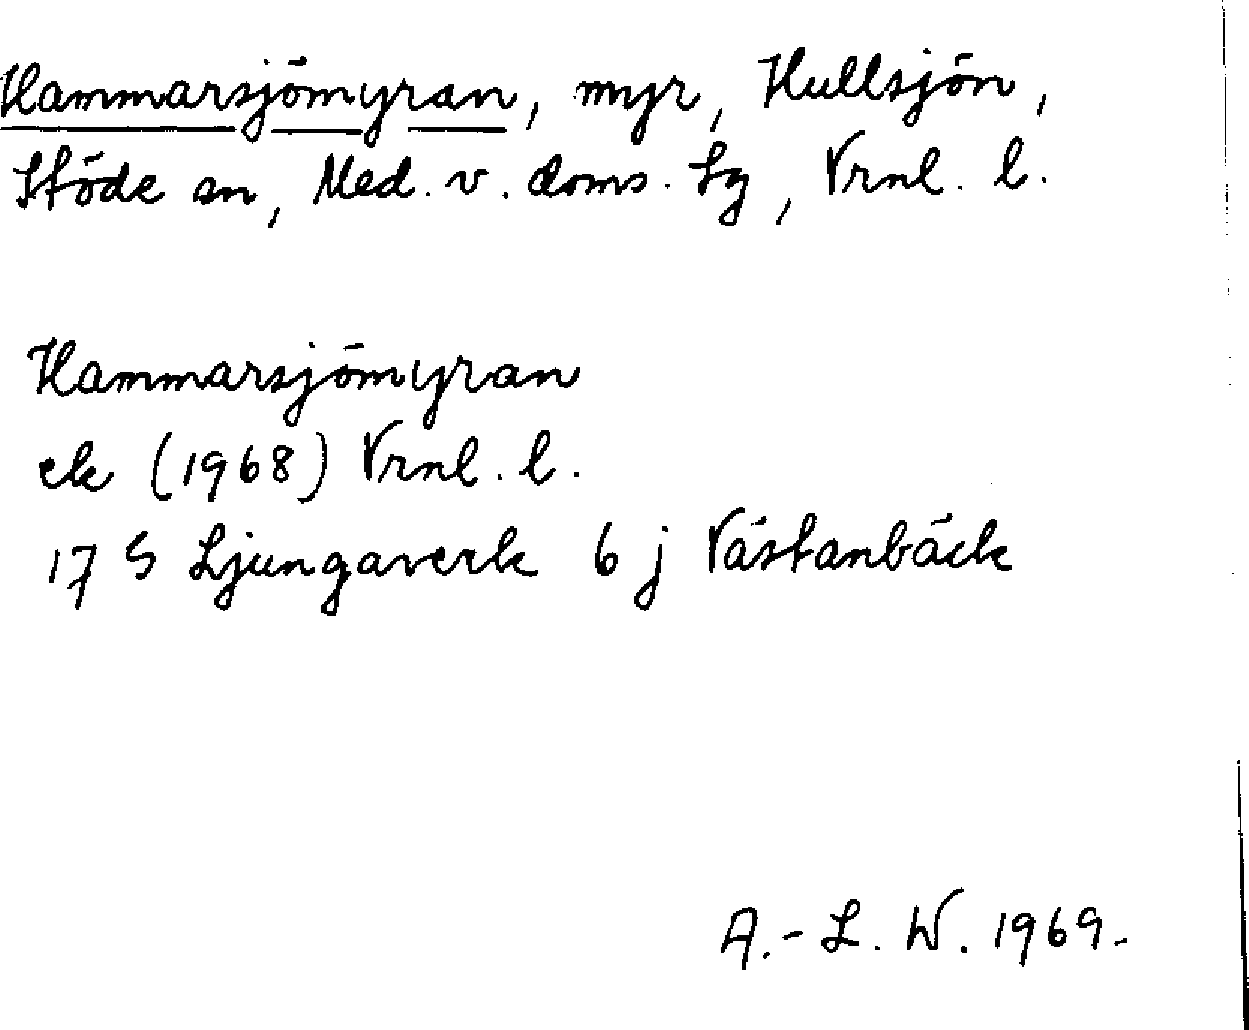 Hammarsjömyran, myr, Hullsjön,
Stöde sn, Med. v. doms. lg, Vrnl. l.
Hammarsjömyran
ek (1968) Vrnl. l.
17 G Ljungaverk 6 j Västanbäck
A.-L. W. 1969.